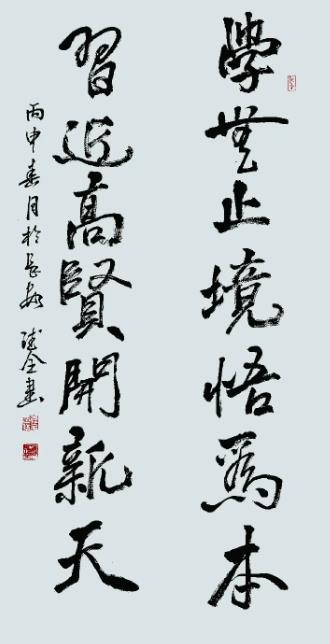 學無止境悟為本
習近高賢開新天
丙申春月於長安